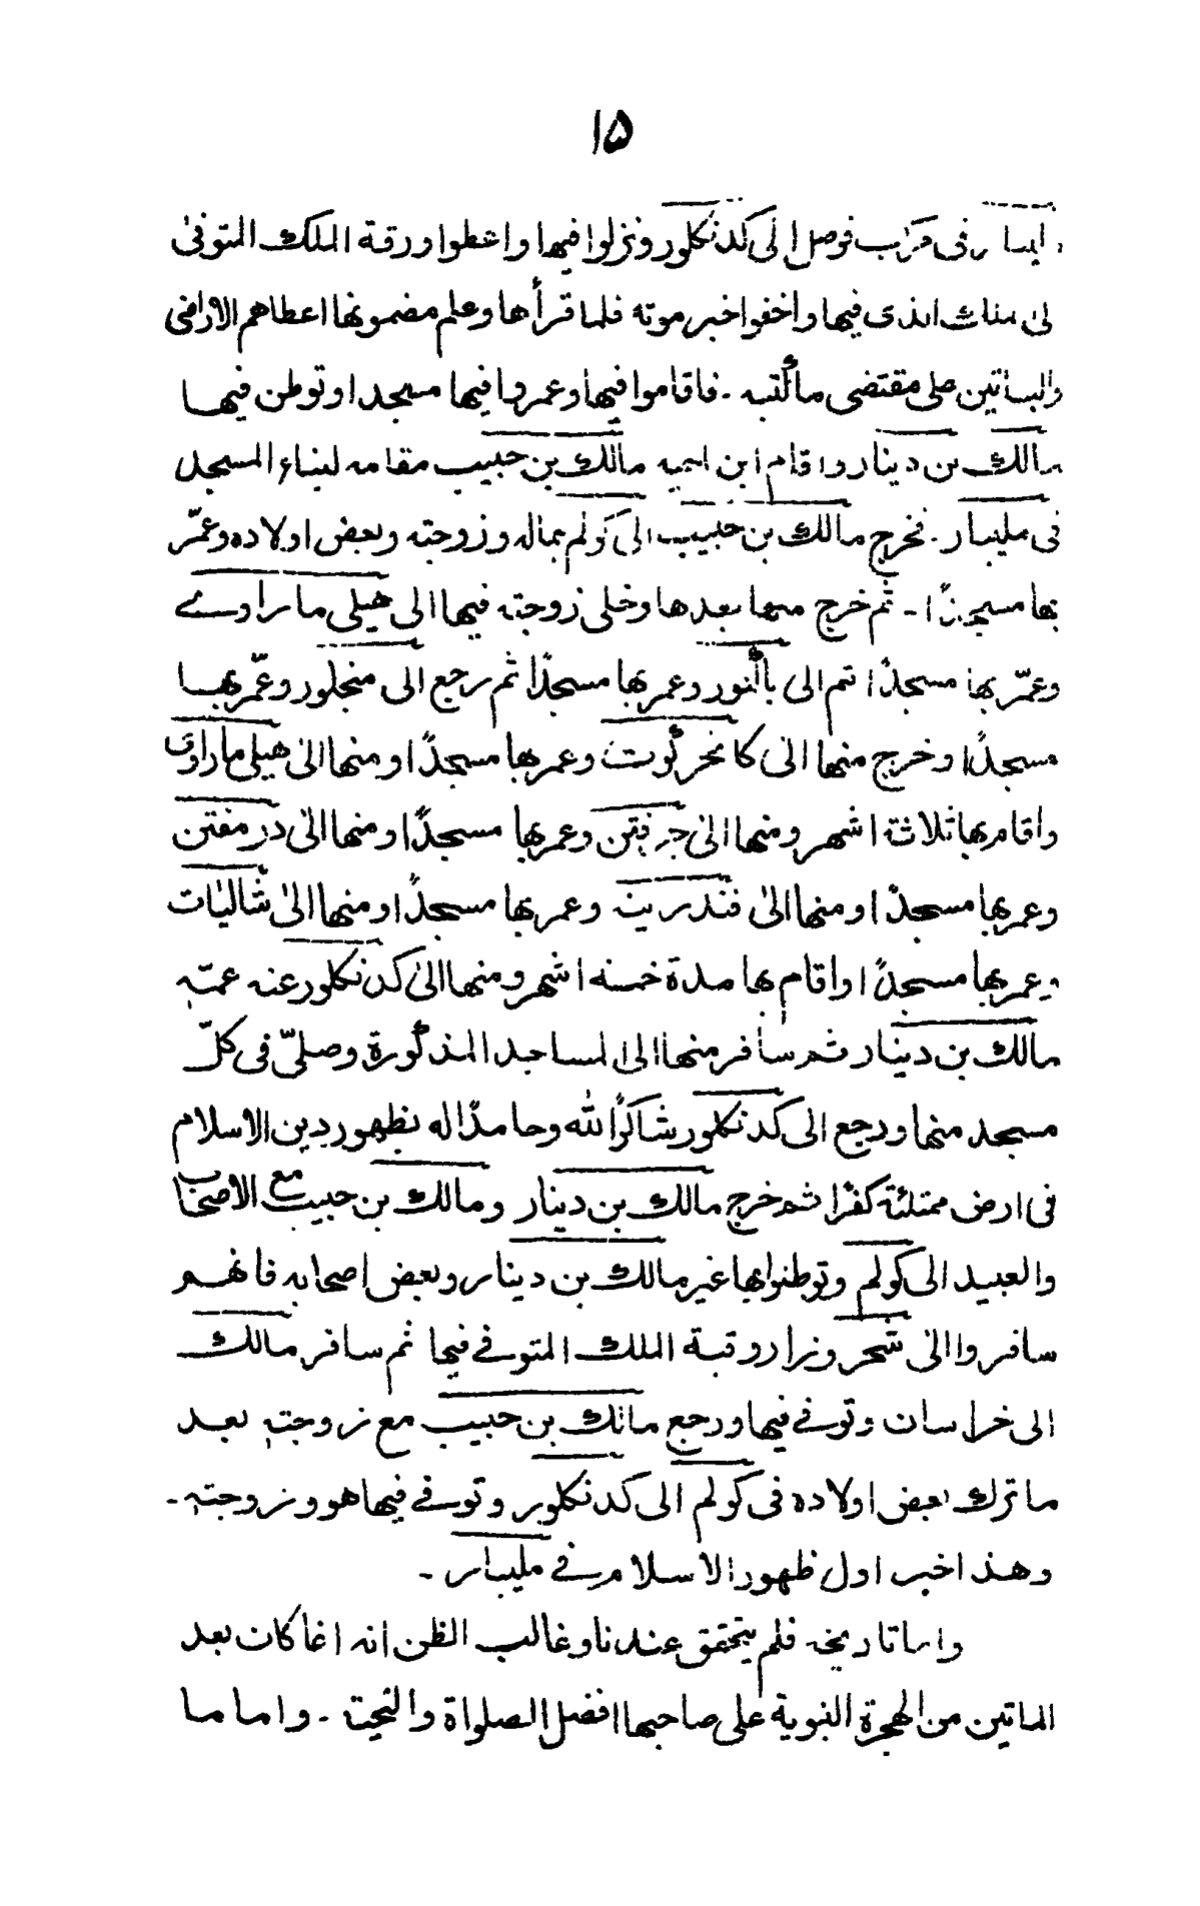 ۱۵
فى مركب فوصل الى كدنكلور ونزلوا فيها واعطوا ورقة الملك المتوفىٰ
الذى فيها واخفوا خبر موته فلما قرأها وعلم مضمونها اعطاهم الاراضى
والبساتين على مقتضى ماكتبه ـ فاقاموا فيها وعمروا فيها مسجدا وتوطن فيها
مالك بن دينار واقام ابن اخيه مالك بن حبيب مقامه لبناء المسجد
فى مليبار ـ فخرج مالك بن حبيب الى كولم بماله وزوجته وبعض اولاده وعمّر
بها مسجدًا ـ ثم خرج منها بعدها وخلى زوجته فيها الى هيلى ماراوے
وعمّر بها مسجدًا ثم الى باكنور وعمر بها مسجدًا ثم رجع الى منجلور وعمّر بها
مسجدًا وخرج منها الى كانجركوت وعمر بها مسجدًا ومنها الىٰ هيلى ماراوى
واقام بها ثلاثة اشهر ومنها الىٰ جرفتن وعمر بها مسجدًا ومنها الىٰ درمفتن
وعمر بها مسجدًا ومنها الىٰ فندرينه وعمر بها مسجدًا ومنها الىٰ شاليات
وعمر بها مسجدًا واقام بها مدة خمسه اشهر ومنها الىٰ كدنكلور عنه عمته
مالك بن دينار ثم سافر منها الى المساجد المذكورة وصلىّ فى كلّ
مسجد منها ورجع الى كدنكلور شاكرًا لله وحامدًا له بظهور دين الاسلام
فى ارض ممتلئة كفرًا ثم خرج مالك بن دينار ومالك بن حبيب مع الاصحاب
والعبيد الى كولم وتوطنوا بها غير مالك بن دينار وبعض اصحابه فانهم
سافروا الى شحر وزاروا قبة الملك المتوفے فيها ثم سافر مالك
الى خراسان وتوفے فيها ورجع مالك بن حبيب مع زوجته بعد
ماترك بعض اولاده فى كولم الى كدنكلور وتوفے فيها هو وزوجته ـ
وهذا خبر اول ظهور الاسلام فے مليبار ـ
واما تاريخه فلم يتحقق عندنا وغالب الظن انه انما كان بعد
الماتين من الهجرة النبوية على صاحبها افضل الصلواة والتحية ـ واما ما